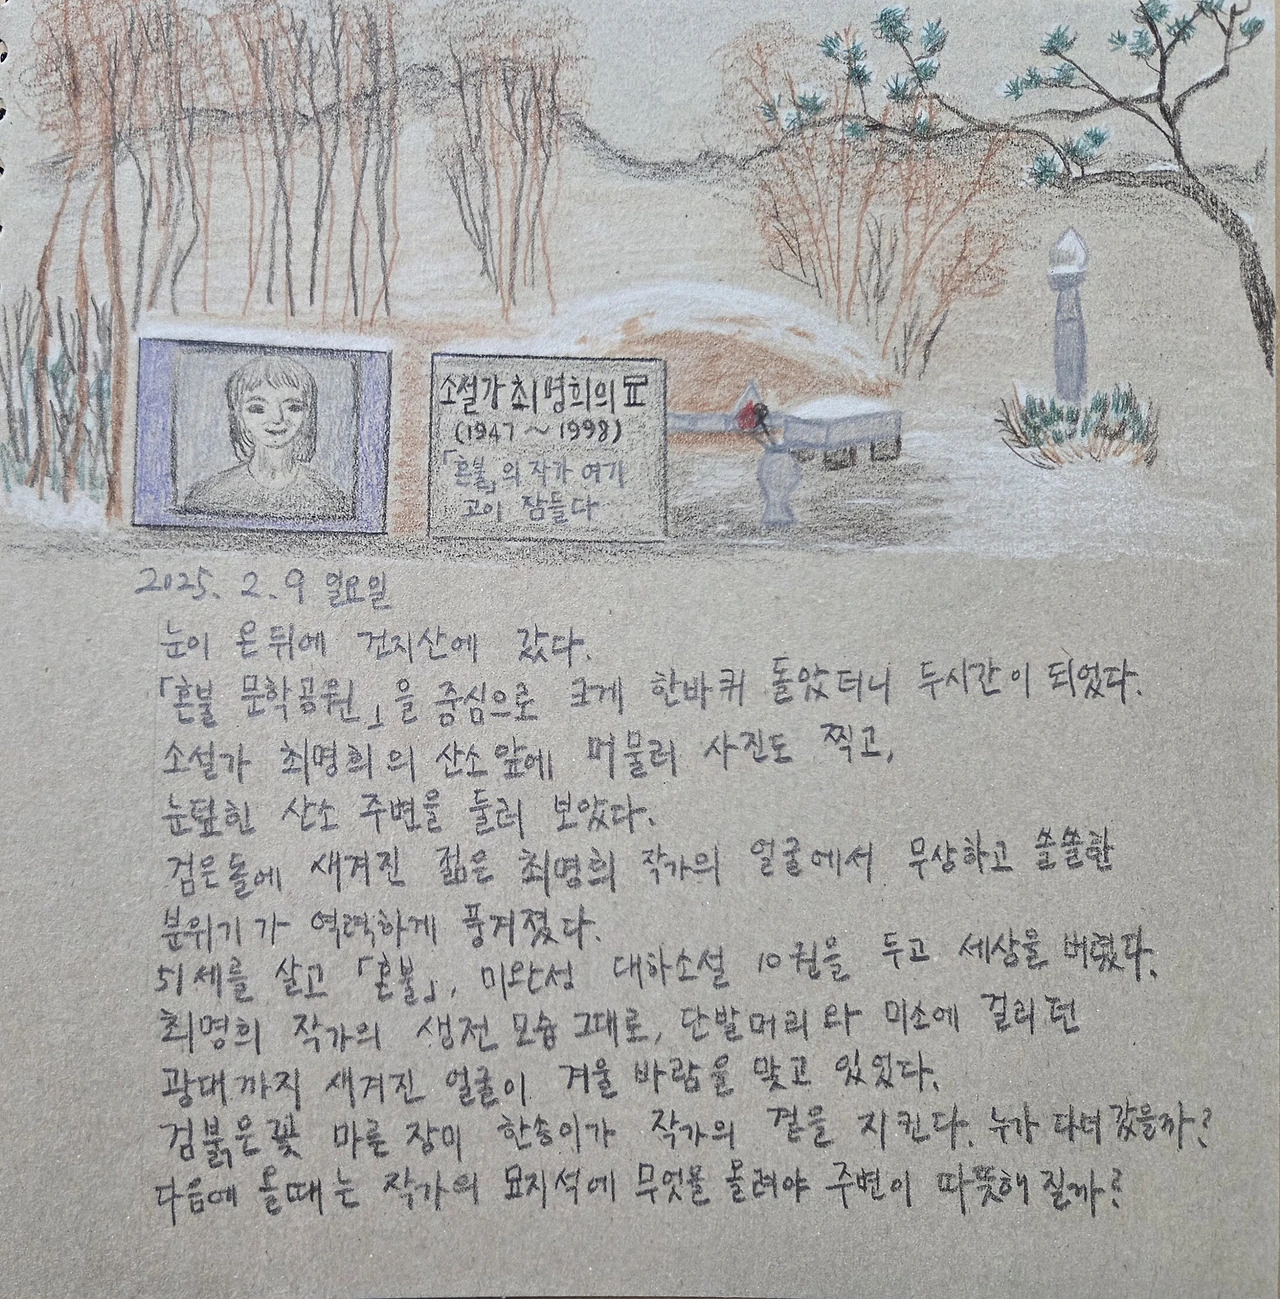 소설가 최명희의 묘
(1947 ~ 1998)
「혼불」의 작가 여기
고이 잠들다
2025. 2. 9 일요일
눈이 온뒤에 건지산에 갔다.
「혼불 문학공원」을 중심으로 크게 한바퀴 돌았더니 두시간이 되었다.
소설가 최명희의 산소앞에 머물러 사진도 찍고,
눈덮힌 산소 주변을 둘러 보았다.
검은돌에 새겨진 젊은 최명희 작가의 얼굴에서 무상하고 쓸쓸한
분위기가 역력하게 풍겨졌다.
51세를 살고 「혼불」, 미완성 대하소설 10권을 두고 세상을 버렸다.
최명희 작가의 생전 모습 그대로, 단발머리와 미소에 걸리던
광대까지 새겨진 얼굴이 겨울 바람을 맞고 있었다.
검붉은꽃 마른 장미 한송이가 작가의 곁을 지킨다. 누가 다녀갔을까?
다음에 올때는 작가의 묘지석에 무엇을 올려야 주변이 따뜻해 질까?